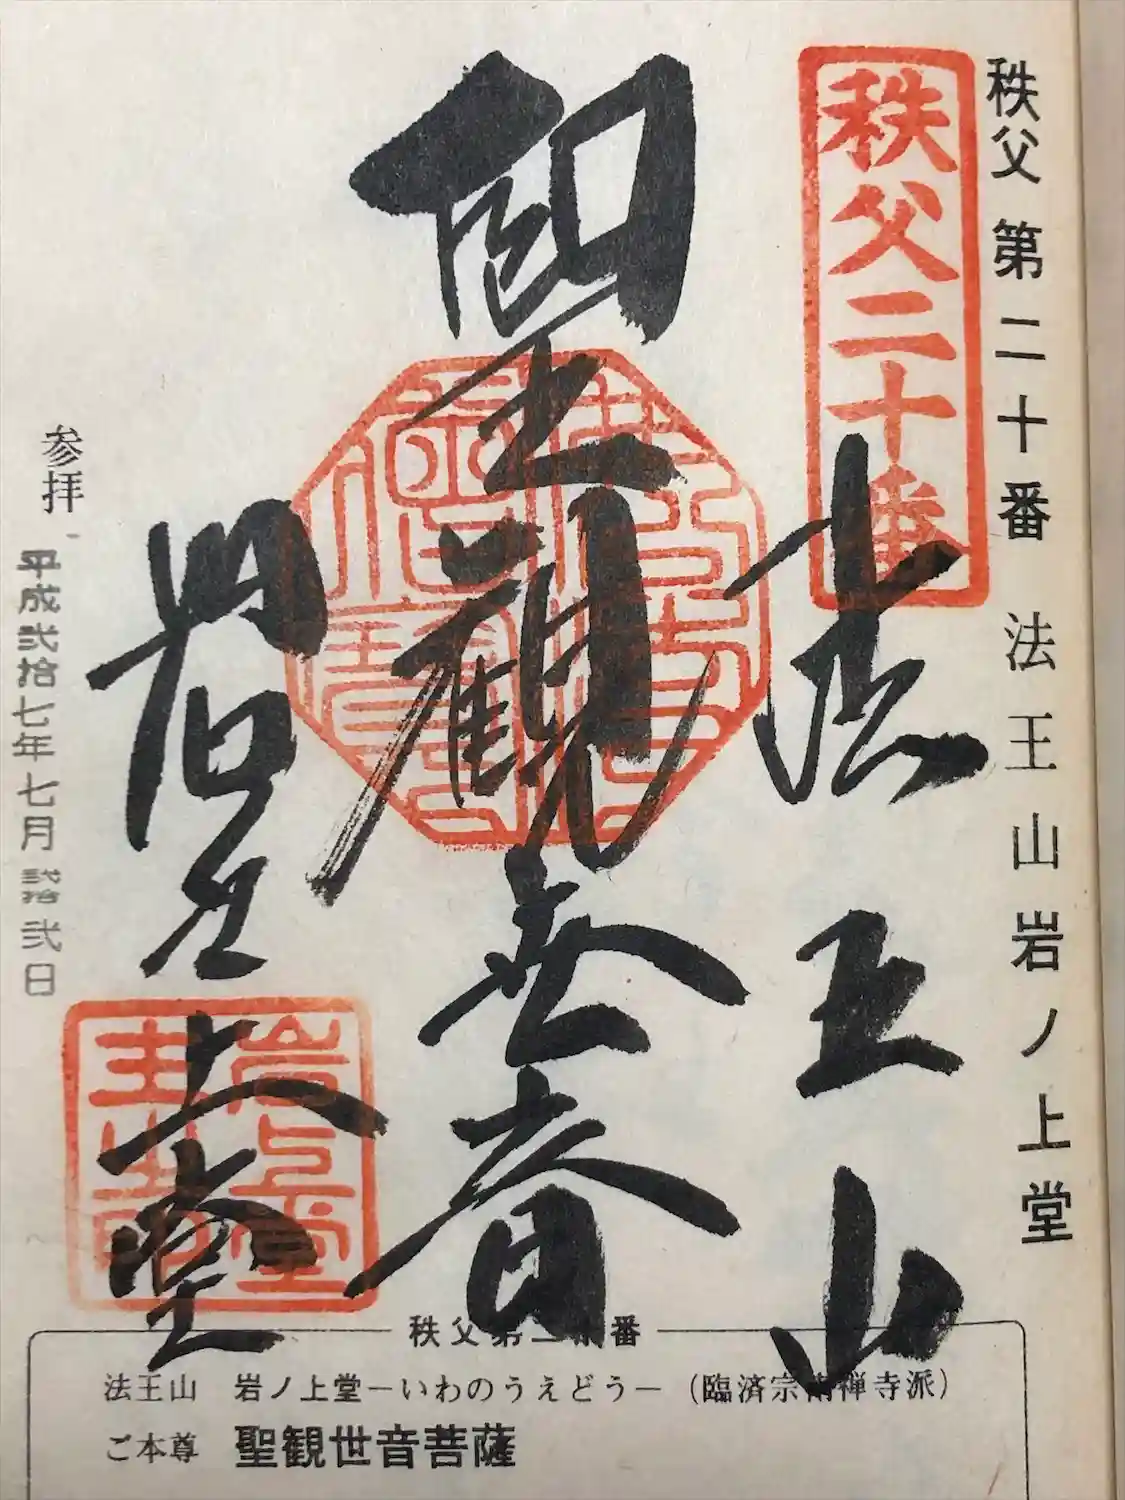 秩父第二十番 法王山岩ノ上堂
秩父二十番
法王山
聖観世音
岩之上堂
岩上堂
参拝 平成弐拾七年七月弐拾弐日
秩父第二十番
法王山 岩ノ上堂－いわのうえどう－（臨済宗南禅寺派）
ご本尊 聖観世音菩薩